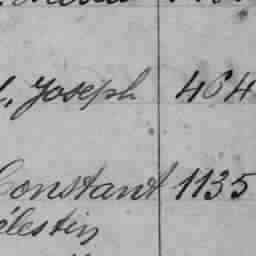 Joseph 464
Constant 1135
élestin